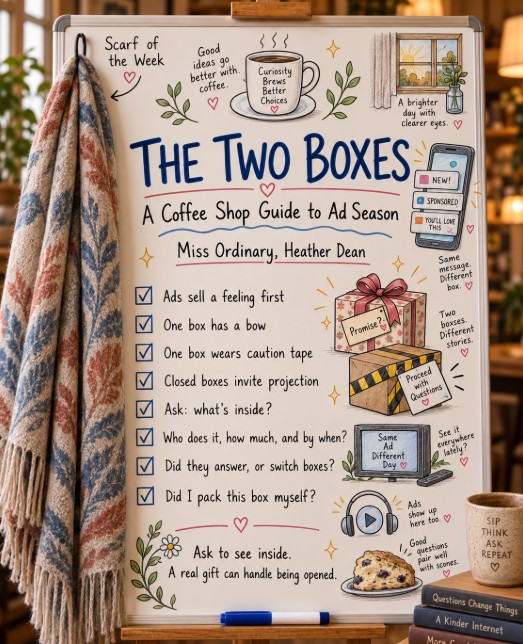 Scarf of
the Week
Good
ideas go
better with
coffee.
Curiosity
Brews
Better
Choices
A brighter
day with
clearer eyes.
THE TWO BOXES
A Coffee Shop Guide to Ad Season
Miss Ordinary, Heather Dean
NEW!
SPONSORED
YOU'LL LOVE
THIS
Same
message.
Different
box.
Ads sell a feeling first
One box has a bow
One box wears caution tape
Closed boxes invite projection
Ask: what's inside?
Who does it, how much, and by when?
Did they answer, or switch boxes?
Did I pack this box myself?
Promise?
Two
boxses.
Different
stories.
Proceed
with
Questions
Same
Ad
Different
Day
See it
everywhere
lately?
Ads
show up
here too.
Good
questions
pair well
with scones.
Ask to see inside.
A real gift can handle being opened.
SIP
THINK
ASK
REPEAT
Questions Change Things
A Kinder Internet